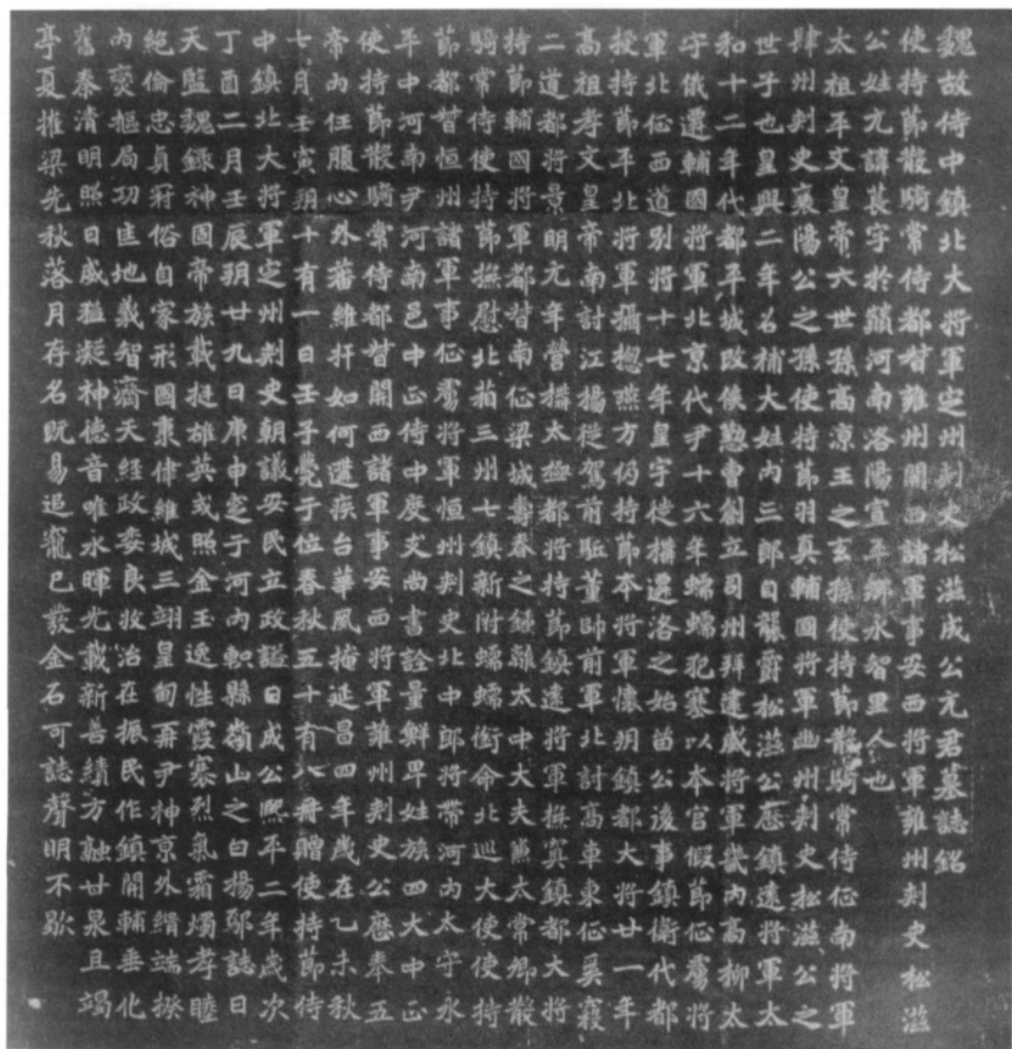 魏故侍中鎮北大將軍定州刺史松滋成公元君墓誌銘
使持節散騎常侍都督雍州開西諸軍事安西將軍雍州刺史松滋
公姓元諱萇字於巔河南洛陽宣平鄉永智里人也
太祖平文皇帝六世孫高涼王之玄孫使持節散騎常侍征南將軍
肆州刺史襄陽公之孫使持節羽真輔國將軍幽州刺史松滋公之
世子也皇興二年召補大姓內三郎日襲爵松滋公歷鎮遠將軍太
和十二年代都平城改俟懃曹創立司州拜建威將軍畿內高柳太
守儀遷輔國將軍北京代尹十六年蠕蠕犯塞以本官假節征虜將
軍北征西道別將十七年皇宇徙構遷洛之始留公後事鎮衛代都
授持節平北將軍攝揔燕方仍持節本將軍懷朔鎮都大將廿一年
高祖孝文皇帝南討江揚從駕前驅董帥前軍北討高車東征奚寇
二道都將景明元年營構太極都將持節鎮遠將軍撫冥鎮都大將
持節輔國將軍都督南征梁城壽春之鍾離太中大夫兼太常卿散
騎常侍使持節撫慰北蕃三州七鎮新附蠕蠕銜命北巡大使使持
節都督恒州諸軍事征虜將軍恒州刺史北中郎將帶河內太守永
平中河南尹河南邑中正侍中度支尚書詮量鮮卑姓族四大中正
使持節散騎常侍都督開西諸軍事安西將軍雍州刺史公歷奉五
帝內任腹心外蕃維扞如何遘疾台華風掩延昌四年歲在乙未秋
七月壬寅朔十有一日壬子薨于位春秋五十有八冊贈使持節侍
中鎮北大將軍定州刺史朝議安民立政謚曰成公熙平二年歲次
丁酉二月壬辰朔廿九日庚申窆于河內軹縣嶺山之白楊鄔誌曰
天監魏錄神固帝族載挺雄英或照金玉逸性霞褰烈氣霜燭孝睦
絕倫忠貞冠俗自家形國秉律維城三翊皇甸再尹神京外緝端揆
內奕樞局功匡地義智濟天經政委良牧治在振民作鎮開輔垂化
舊秦清明照日威猛凝神德音唯永暉光載新善績方融甘泉且竭
亭夏摧梁先秋落月存名既易追寵已發金石可誌聲明不歇